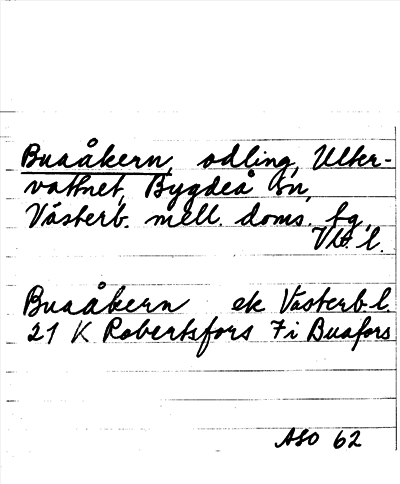 Buaåkern, odling, Ulter-
vattnet, Bygdeå sn,
Västerb. mell. doms. tg,
Vb. l.
Buaåkern ek Västerb. l.
21 K Robertsfors 7 i Buafors
ASO 62